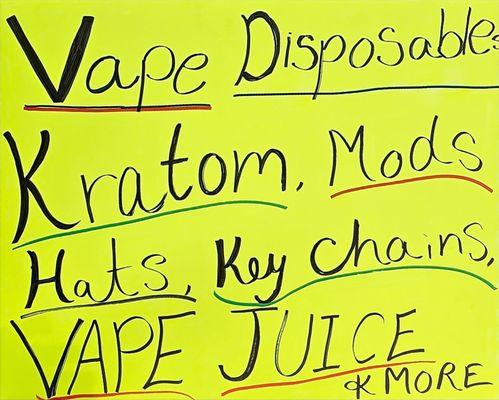 Vape Disposables
Kratom, Mods
Hats, Key Chains,
VAPE JUICE
& MORE